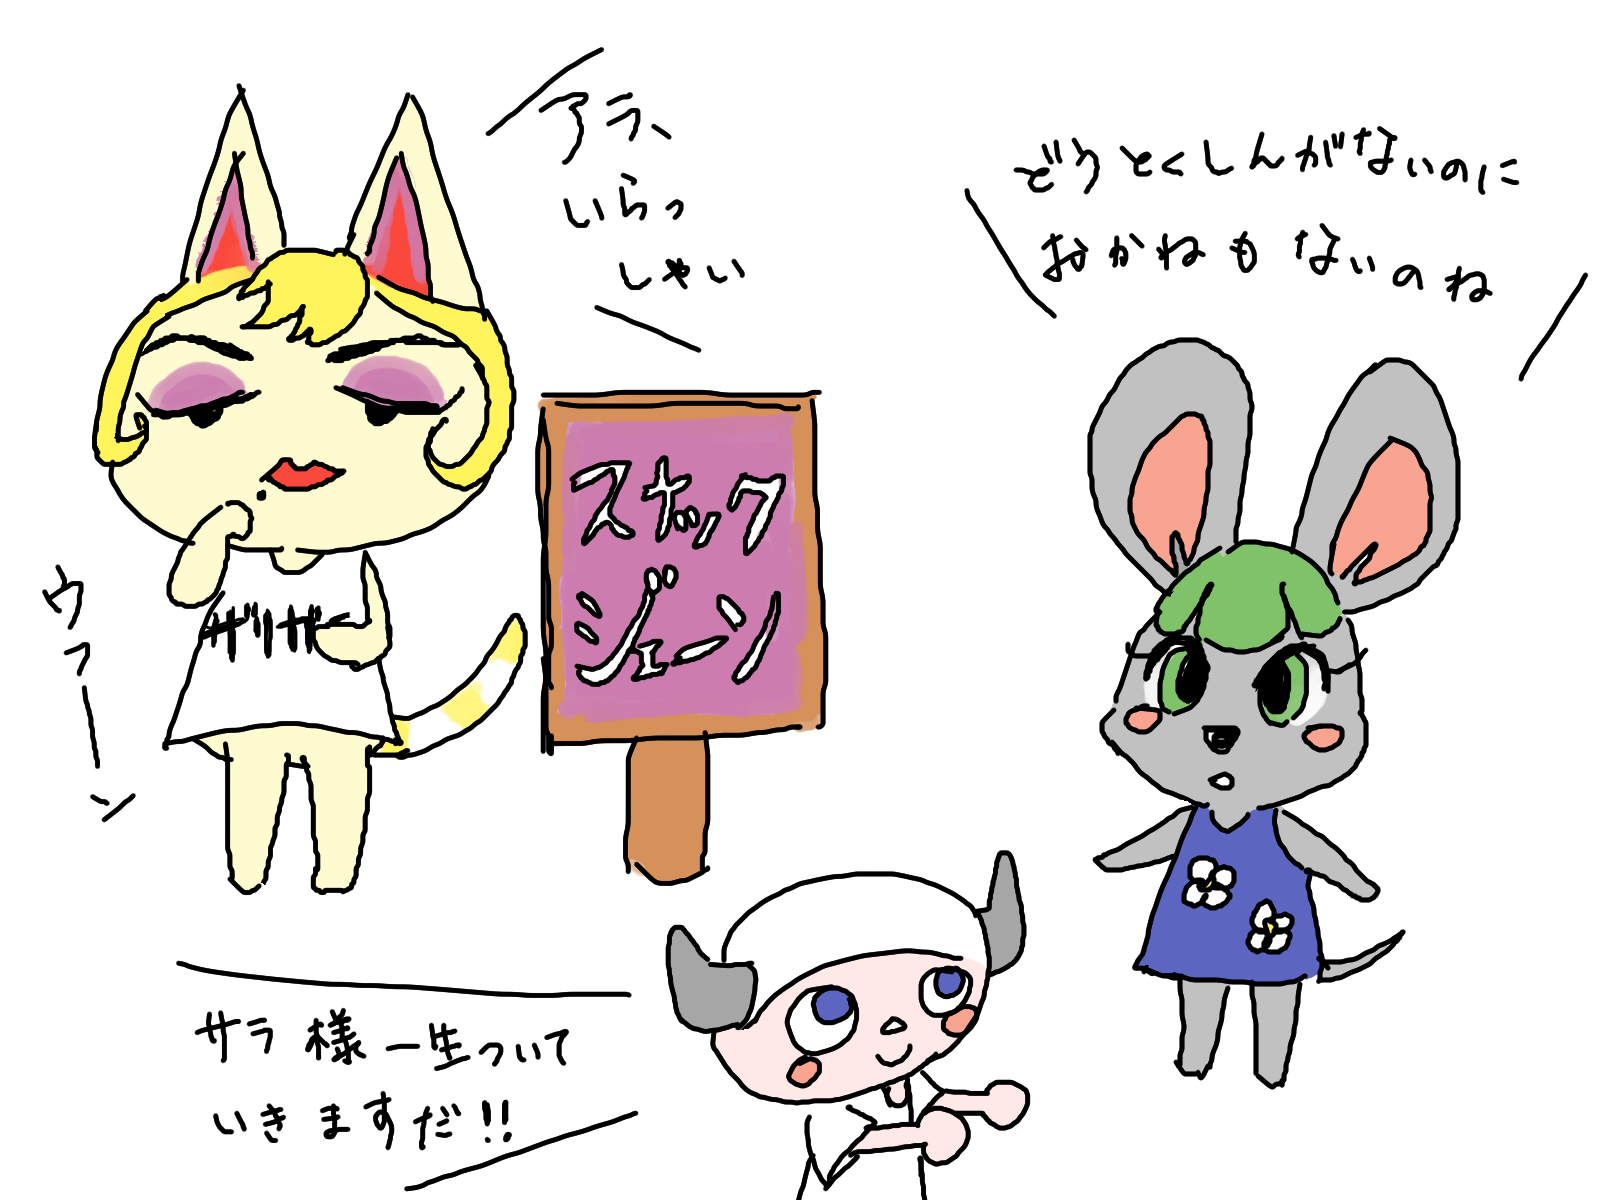 アラ、
いらっ
しゃい
どうとくしんがないのに
おかねもないのね
スナック
ジェーン
ザリザ
ウフーン
サラ様一生ついて
いきますだ!!